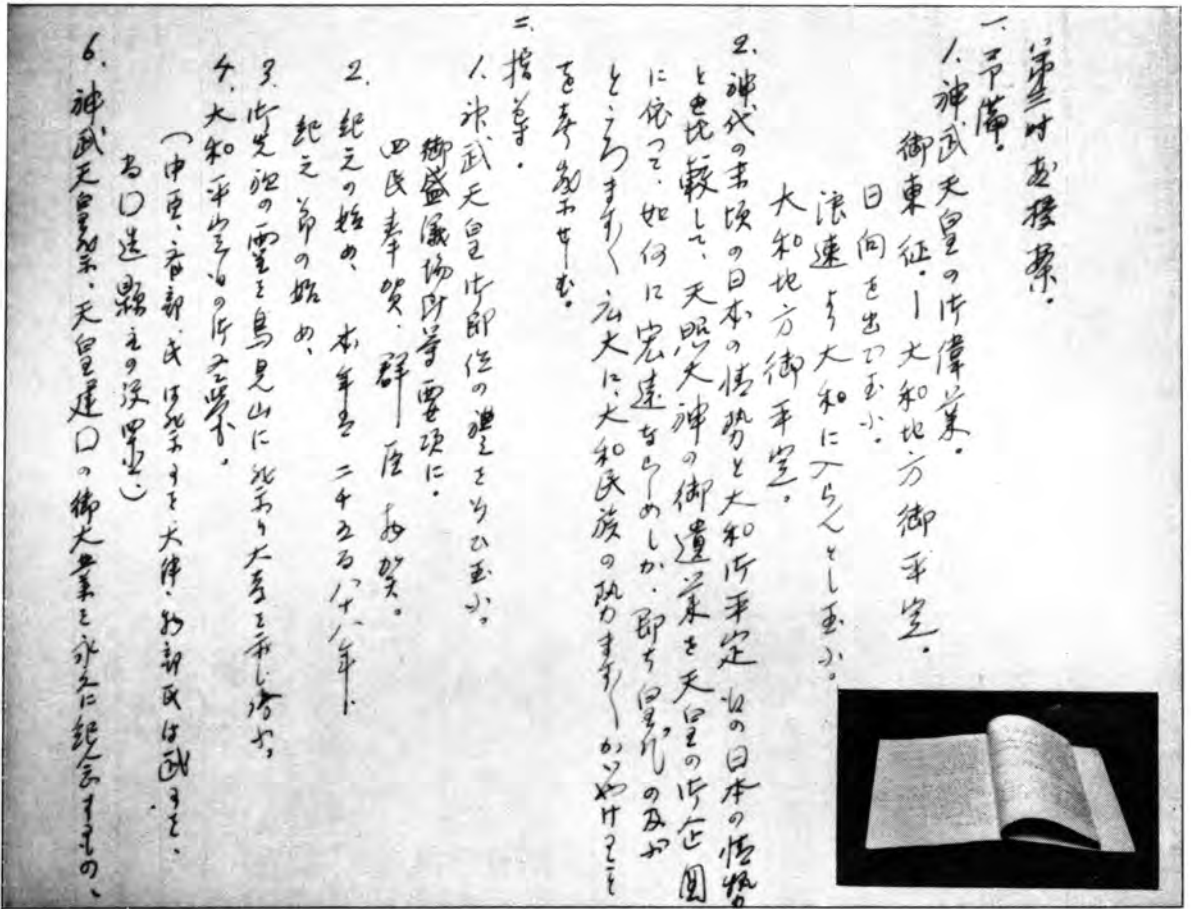 第三時教授案。
一、予備。
1、神武天皇の御偉業。
御東征。―大和地方御平定。
日向を出で玉ふ。
浪速より大和に入らんとし玉ふ。
大和地方御平定。
2、神代の末頃の日本の情勢と大和御平定後の日本の情勢
と比較して、天照大神の御遺業を天皇の御企図
に依つて、如何に宏遠ならしめしか、即ち皇化の及ぶ
ところます〱広大に、大和民族の勢力ます〱かゞやけること
を考察せしむ。
二、指導。
1、神武天皇御即位の礼を行ひ玉ふ。
御盛儀場所等要項に。
四民奉賀、群臣拝賀。
2、紀元の始め、本年は二千五百八十八年、
紀元節の始め、
3、御先祖の霊を鳥見山に祭り大孝を示し給ふ。
4、大和平定后の御
(中臣、斎部、氏は祭りを大伴、物部氏は武を、
造縣主の設置。)
6、神武天皇祭、天皇建口の御大業を永久に紀念するもの、